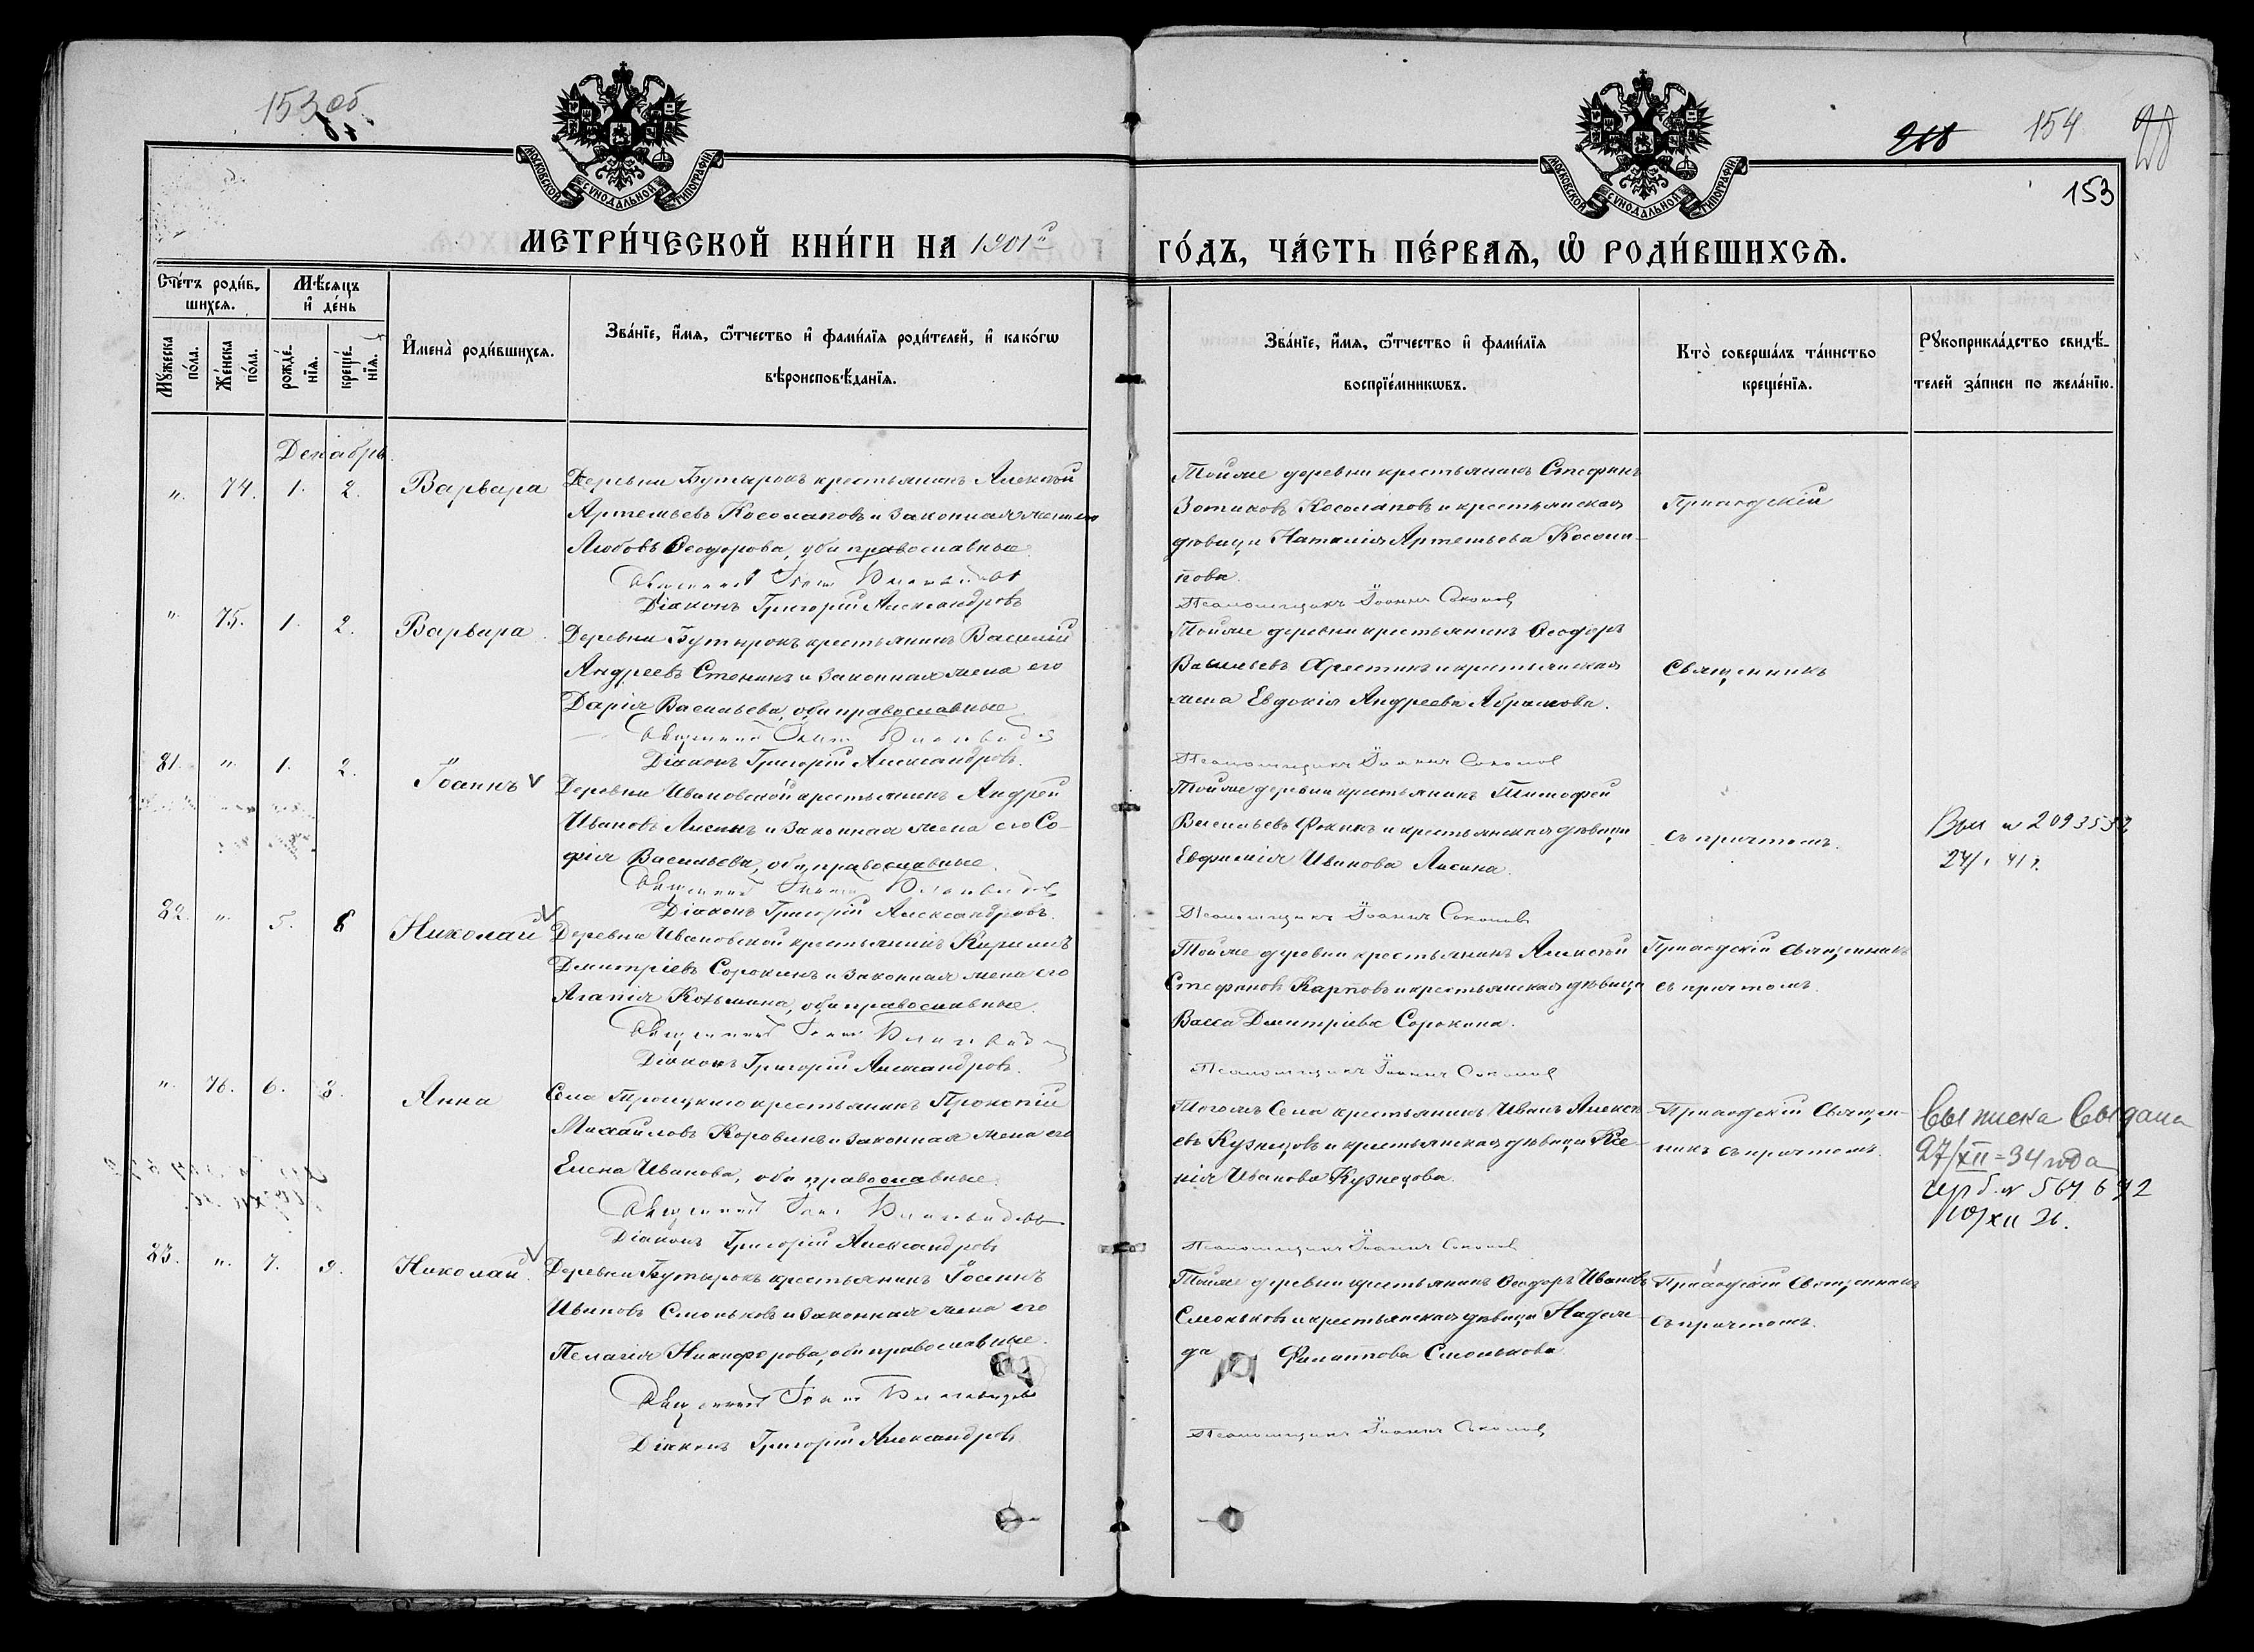 153 об
154
153
МОСКОВСКОЙ СѴНОДАЛЬНОЙ ТИПОГРАФІИ
МОСКОВСКОЙ СѴНОДАЛЬНОЙ ТИПОГРАФІИ
МЕТРИ́ЧЕСКОЙ КНИ́ГИ НА 1901й ГО́ДЪ, ЧА́СТЬ ПЕ́РВАѦ, Ѡ҆ РОДИ́ВШИХСѦ.
Сче́тъ роди́в-
шихсѧ.
Мѣ́сѧцъ
и҆ де́нь
Мꙋ́жеска по́ла.
Же́нска по́ла.
рожде́-нїѧ.
креще́-нїѧ.
И҆мена̀ роди́вшихсѧ.
Зва́нїе, и҆́мѧ, ѻ҆́тчество и҆ фами́лїѧ роди́телей, и҆ како́гѡ
вѣроисповѣ́данїѧ.
Зва́нїе, и҆́мѧ, ѻ҆́тчество и҆ фами́лїѧ
воспрїе́мникѡвъ.
Кто̀ соверша́лъ та́инство
креще́нїѧ.
Рꙋкоприкла́дство свидѣ́-
телей за́писи по жела́нїю.
Декабрь.
" 74. 1. 2. Варвара
Деревни Бутырокъ крестьянинъ Алексѣй
Артемьевъ Косолаповъ и законная жена его
Любовь Ѳеодорова, оба православные.
Священникъ Іоаннъ
Діаконъ Григорій Александровъ
Тойже деревни крестьянинъ Стефанъ
Зотиковъ Косолаповъ и крестьянская
дѣвица Наталія Артемьева Косола-
пова.
Псаломщикъ Іоаннъ Соколовъ
Приходскій
" 75. 1. 2. Варвара
Деревни Бутырокъ крестьянинъ Василій
Андреевъ Стенинъ и законная жена его
Дарія Васильева, оба православные.
Священникъ Іоаннъ
Діаконъ Григорій Александровъ.
Тойже деревни крестьянинъ Ѳеодоръ
Васильевъ и крестьянская
жена Евдокія Андреева Абрамова.
Псаломщикъ Іоаннъ Соколовъ
Священникъ
81. " 1. 2. Іоаннъ v
Деревни Ивановской крестьянинъ Андрей
Ивановъ Лисинъ и законная жена его Со-
фія Васильева, оба православные.
Священникъ Іоаннъ
Діаконъ Григорій Александровъ.
Тойже деревни крестьянинъ Тимофей
Васильевъ Фокинъ и крестьянская дѣвица
Евфимія Иванова Лисина.
Псаломщикъ Іоаннъ Соколовъ
съ причтомъ.
№ 2093532
82. " 5. 8 Николай v
Деревни Ивановской крестьянинъ Кириллъ
Димитріевъ Сорокинъ и законная жена его
Агапія Козьмина, оба православные.
Священникъ Іоаннъ
Діаконъ Григорій Александровъ.
Тойже деревни крестьянинъ Алексѣй
Стефановъ Карповъ и крестьянская дѣвица
Васса Димитріева Сорокина.
Псаломщикъ Іоаннъ Соколовъ
Приходскій Священникъ
съ причтомъ.
" 76. 6. 8. Анна
Села Троицкаго крестьянинъ Прокопій
Михайловъ Коровинъ и законная жена его
Елена Иванова, оба православные.
Священникъ Іоаннъ
Діаконъ Григорій Александровъ
Тогожъ Села крестьянинъ Иванъ Алексѣ-
евъ Кузнецовъ и крестьянская дѣвица Ксе-
нія Иванова Кузнецова.
Псаломщикъ Іоаннъ Соколовъ
Приходскій Священ-
никъ съ причтомъ.
Выписка выдана
27/XII-34 года
83. " 7. 9. Николай v
Деревни Бутырокъ крестьянинъ Іоаннъ
Ивановъ Смоньковъ и законная жена его
Пелагія Никифорова, оба православные.
Священникъ Іоаннъ
Діаконъ Григорій Александровъ
Тойже деревни крестьянинъ Ѳеодоръ Ивановъ
Смоньковъ и крестьянская дѣвица Надеж-
да Филиппова Смонькова.
Псаломщикъ Іоаннъ Соколовъ
Приходскій Священникъ
съ причтомъ.